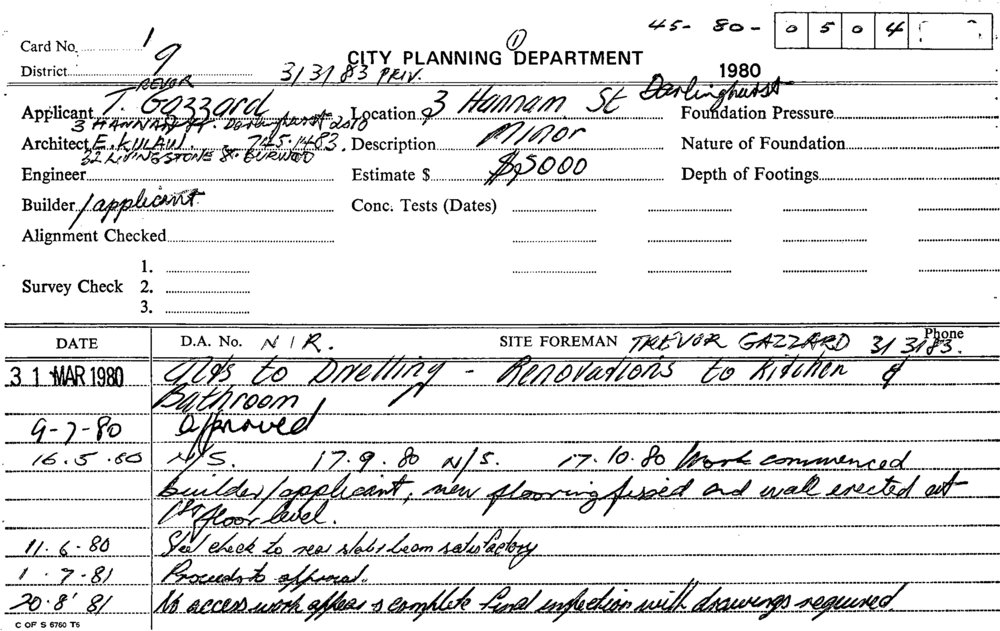 45-80-0504
Card No. 1
CITY PLANNING DEPARTMENT
1
District 9
313183 PRIV.
1980
TREVOR
Applicant T. Gazzard
Location 3 Hannam St Darlinghurst
Foundation Pressure
3 HANNAM St. Darlinghurst 2010
Architect E. KULAW. 745.1483.
Description Minor
Nature of Foundation
32 LIVINGSTONE St. BURWOOD
Engineer
Estimate $ $5000
Depth of Footings
Builder /applicant
Conc. Tests (Dates)
Alignment Checked
1.
Survey Check 2.
3.
DATE
D.A. No. N/R.
SITE FOREMAN TREVOR GAZZARD
Phone
313183.
31 MAR 1980 Alts to Dwelling - Renovations to Kitchen &
Bathroom
9-7-80 Approved
16.5.80 N/S. 17.9.80 N/S. 17.10.80 Work commenced
builder/applicant, new flooring fixed and wall erected at
1st floor level.
11.6.80 Steel check to rear slab & beam satisfactory
1.7.81 Proceeds to approval.
20.8.81 No access work appears complete final inspection with drawings required.
C OF S 6760 T5